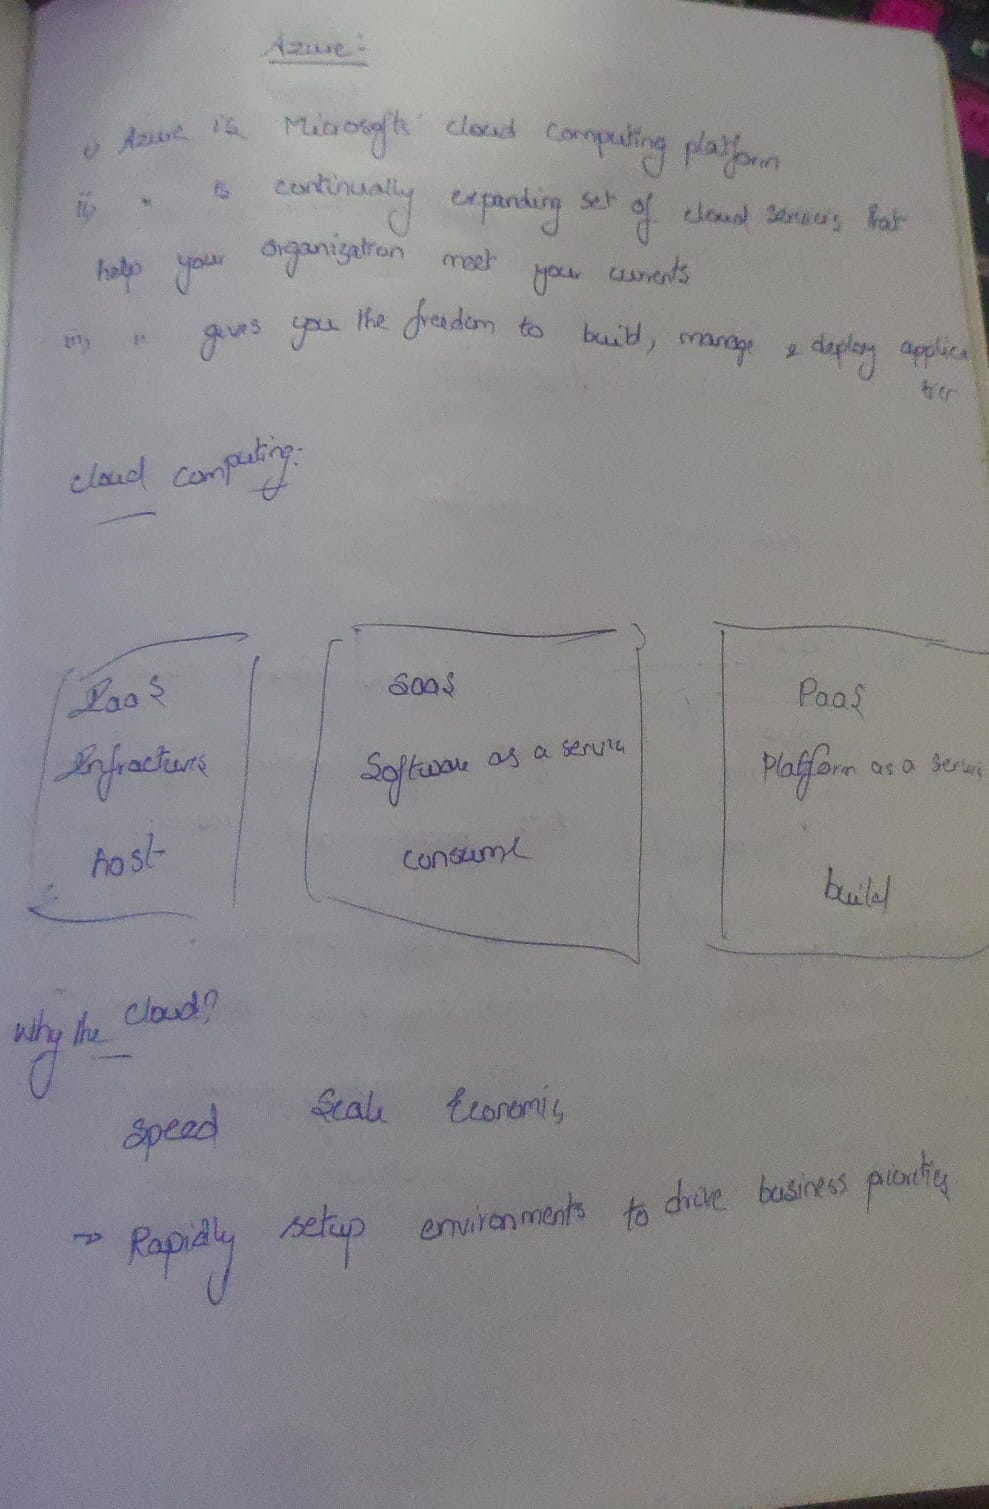 Azure:-
i) Azure is Microsofts' cloud computing platform
ii) " is continually expanding set of cloud services that
help your organization meet your currents
iii) " gives you the freedom to build, manage & deploy applica
tion
cloud computing:
IaaS SaaS PaaS
Infractures Software as a service Platform as a service
host consume build
Why the cloud?
Speed Scale Economics
→ Rapidly setup environments to drive business priorities